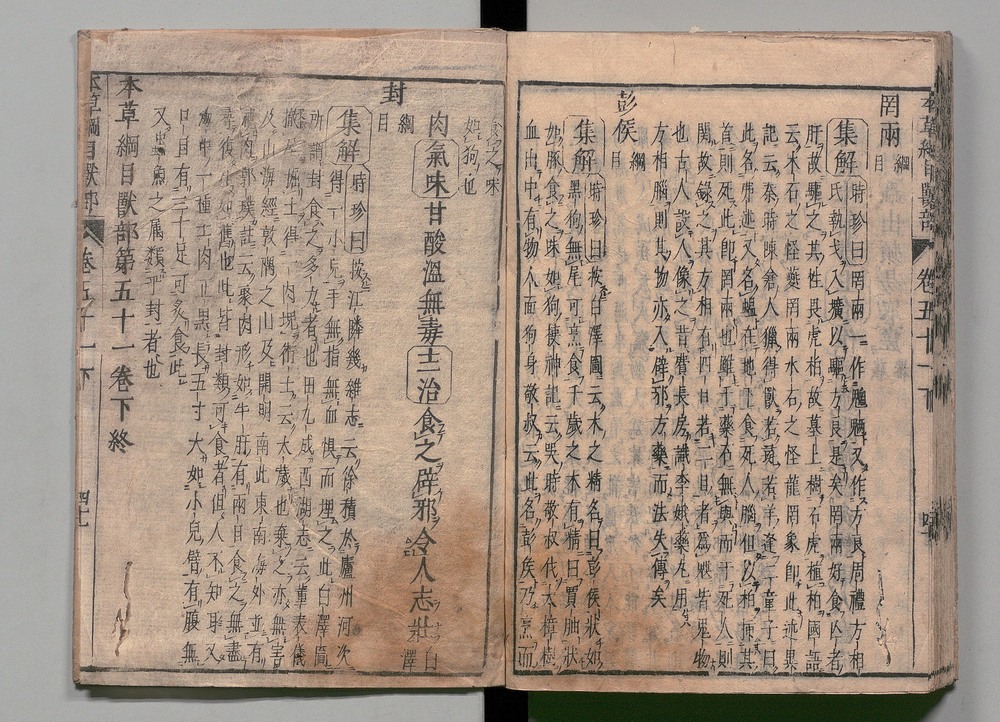 本草綱目獸部 卷五十一下
罔兩 綱目
集解 時珍曰罔兩一作魍魎又作方良周禮方相
氏執戈入壙以驅方良是矣罔兩好食亾者
肝故驅之其性畏虎柏故墓上樹石虎植柏國語
云木石之怪夔罔兩水石之怪龍罔象即此述異
記云秦時陳倉人獵得獸若彘若羊逢二童子曰
此名弗述又名蝹在地下食死人腦但以柏插其
首則死此即罔兩也雖于藥石無與而于死人則
關故錄之其方相有四目若二目者為魌皆鬼物
也古人設人像之昔費長房識李娥藥丸用
方相腦則其物亦入辟邪方藥而法失傳矣
彭侯 綱目
集解 時珍曰按白澤圖云木之精名曰彭侯狀如
黑狗無尾可烹食千歲之木有精曰賈朏狀
如豚食之味如狗搜神記云吳時敬叔伐大樟樹
血出中有物人面狗身敬叔云此名彭侯乃烹而
食之味
如狗也
肉 氣味 甘酸溫無毒 主治 食之辟邪令人志壯 白澤
封 綱目
集解 時珍曰按江隣幾雜志云徐積於廬州河次
得一小兒手無指無血懼而埋之此白澤圖
所謂封食之多力者也田九成西湖志云董表儀
撤屋掘土得一肉塊術士云太歲也棄之亦無害
又山海經敦隅之山及開明南北東南海外並有
視肉郭璞註云聚肉形如牛肝有兩目食之無盡
尋復生如舊也此皆封類可食者但人不知耳又
一種土肉正黑長五寸大如小兒臂有腹無
口目有三十足可炙食此
又蟲魚之屬類乎封者也
本草綱目獸部第五十一卷下終